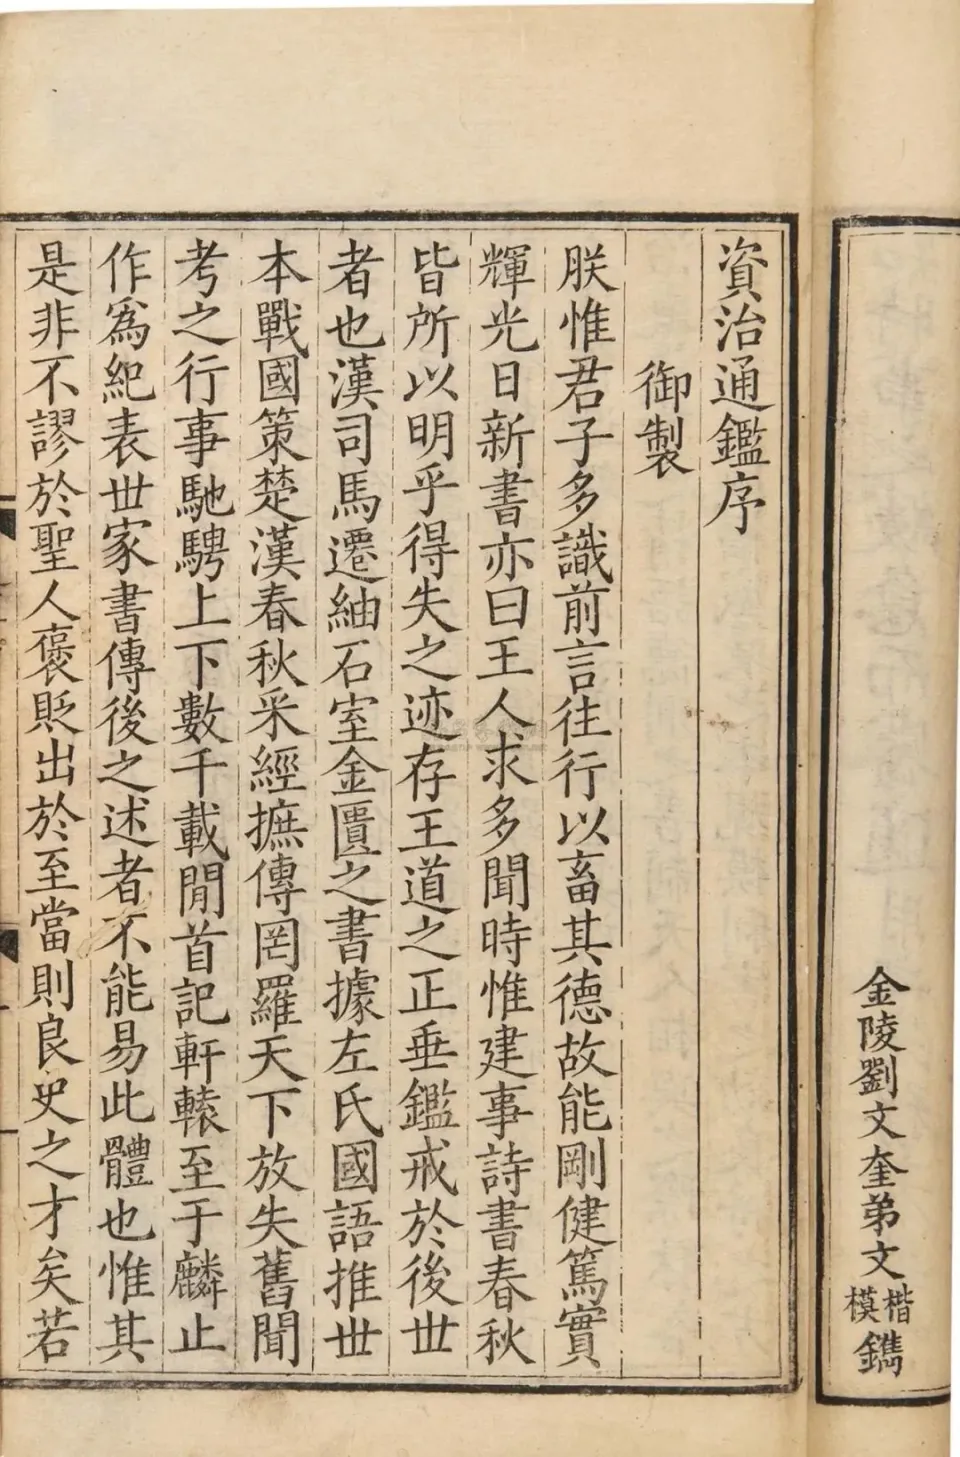 金陵劉文奎弟文楷模鐫
資治通鑑序
御製
朕惟君子多識前言往行以畜其德故能剛健篤實
輝光日新書亦曰王人求多聞時惟建事詩書春秋
皆所以明乎得失之迹存王道之正垂鑑戒於後世
者也漢司馬遷紬石室金匱之書據左氏國語推世
本戰國策楚漢春秋采經摭傳罔羅天下放失舊聞
考之行事馳騁上下數千載閒首記軒轅至于麟止
作爲紀表世家書傳後之述者不能易此體也惟其
是非不謬於聖人褒貶出於至當則良史之才矣若